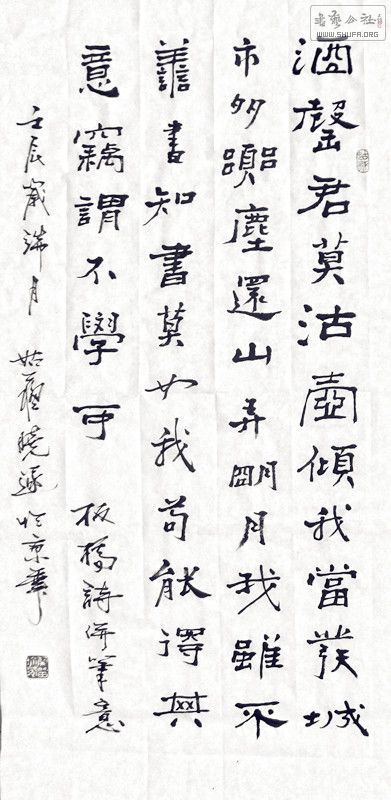 书艺公社
WWW.SHUFA.ORG
酒罄君莫沽壺傾我當發城
市多囂塵還山弄明月我雖不
善書知書莫如我苟能得其
意竊謂不學可 板橋詩併筆意
壬辰歲瑞月 曉於京華